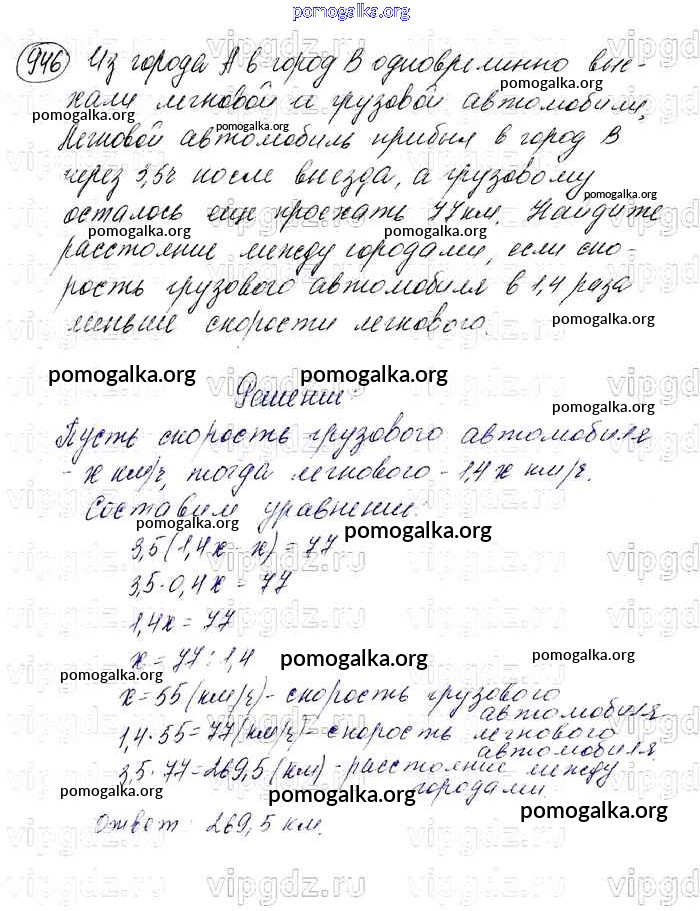 pomogalka.org
946 Из города А в город В одновременно вые-
хали легковой и грузовой автомобили.
pomogalka.org pomogalka.org pomogalka.org
Легковой автомобиль прибыл в город В
через 3,5ч после выезда, а грузовому
pomogalka.org
осталось еще проехать 77 км. Найдите
pomogalka.org pomogalka.org
расстояние между городами, если ско-
рость грузового автомобиля в 1,4 раза
меньше скорости легкового.
pomogalka.org
pomogalka.org pomogalka.org
Решение:
pomogalka.org
Пусть скорость грузового автомобиля
- х км/ч, тогда легкового - 1,4х км/ч.
Составим уравнение:
pomogalka.org pomogalka.org
3,5(1,4х - х) = 77
3,5·0,4х = 77
1,4х = 77
х = 77 : 1,4
pomogalka.org pomogalka.org
pomogalka.org
х = 55 (км/ч) - скорость грузового
автомобиля
1,4·55 = 77 (км/ч) - скорость легкового
автомобиля.
3,5·77 = 269,5 (км) - расстояние между
городами.
pomogalka.org pomogalka.org
pomogalka.org
Ответ: 269,5 км.
vipgdz.ru vipgdz.ru vipgdz.ru